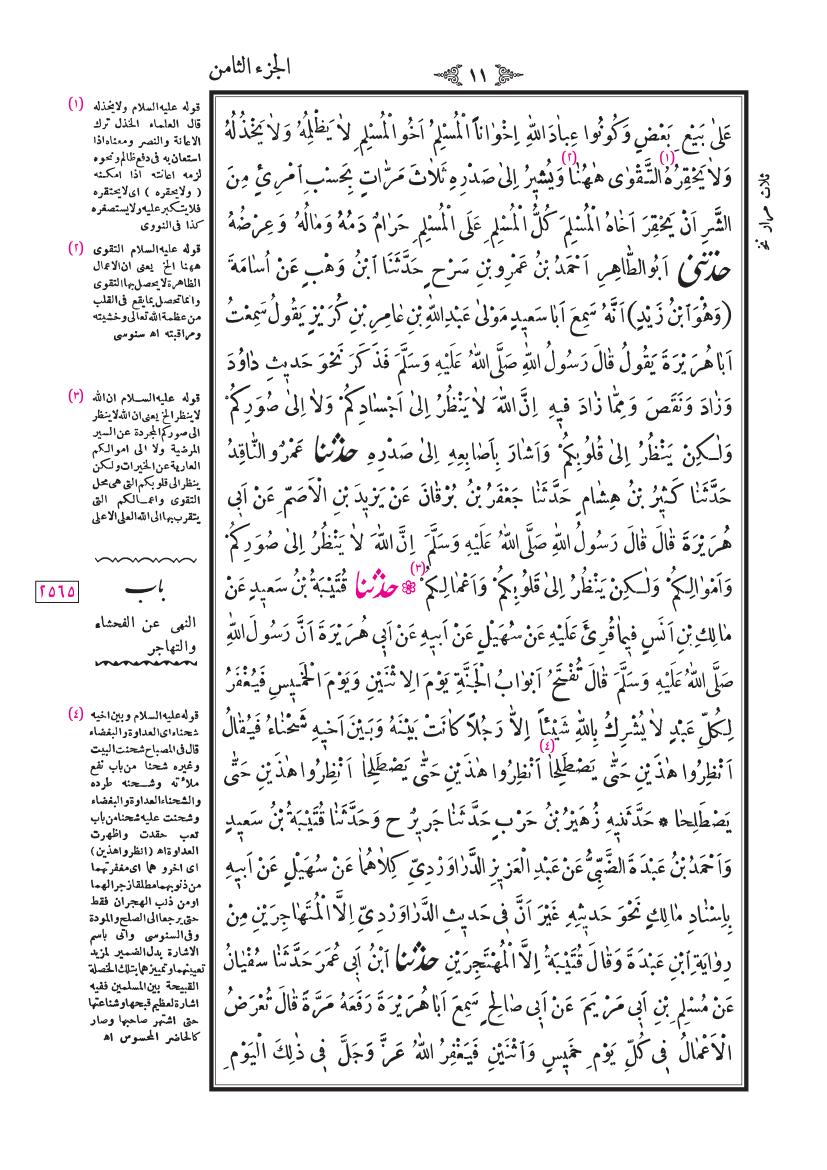 الجزء الثامن
١١
عَلىٰ بَيْعِ بَعْضٍ وَكُونُوا عِبادَ اللّٰهِ اِخْواناً اَلْمُسْلِمُ اَخُو الْمُسْلِمِ لاٰ يَظْلِمُهُ وَلاٰ يَخْذُلُهُ
وَلاٰ يَحْقِرُهُ (١) اَلتَّقْوٰى هٰهُنٰا (٢) وَيُشيرُ اِلىٰ صَدْرِهِ ثَلاٰثَ مَرّٰاتٍ بِحَسْبِ امْرِئٍ مِنَ
الشَّرِّ اَنْ يَحْقِرَ اَخٰاهُ الْمُسْلِمَ كُلُّ الْمُسْلِمِ عَلَى الْمُسْلِمِ حَرٰامٌ دَمُهُ وَمٰالُهُ وَعِرْضُهُ
حَدَّثَنى اَبُو الطّٰاهِرِ اَحْمَدُ بْنُ عَمْرِو بْنِ سَرْحٍ حَدَّثَنَا ابْنُ وَهْبٍ عَنْ اُسٰامَةَ
(وَهُوَ ابْنُ زَيْدٍ) اَنَّهُ سَمِعَ اَبٰا سَعيدٍ مَوْلىٰ عَبْدِ اللّٰهِ بْنِ عٰامِرِ بْنِ كُرَيْزٍ يَقُولُ سَمِعْتُ
اَبٰا هُرَيْرَةَ يَقُولُ قٰالَ رَسُولُ اللّٰهِ صَلَّى اللّٰهُ عَلَيْهِ وَسَلَّمَ فَذَكَرَ نَحْوَ حَديثِ دٰاوُدَ
وَزٰادَ وَنَقَصَ وَمِمّٰا زٰادَ فيهِ اِنَّ اللّٰهَ لاٰ يَنْظُرُ اِلىٰ اَجْسٰادِكُمْ وَلاٰ اِلىٰ صُوَرِكُمْ
وَلٰكِنْ يَنْظُرُ اِلىٰ قُلُوبِكُمْ وَاَشٰارَ بِاَصٰابِعِهِ اِلىٰ صَدْرِهِ حَدَّثَنا عَمْرٌو النّٰاقِدُ
حَدَّثَنٰا كَثيرُ بْنُ هِشٰامٍ حَدَّثَنٰا جَعْفَرُ بْنُ بُرْقٰانَ عَنْ يَزيدَ بْنِ الْاَصَمِّ عَنْ اَبى
هُرَيْرَةَ قٰالَ قٰالَ رَسُولُ اللّٰهِ صَلَّى اللّٰهُ عَلَيْهِ وَسَلَّمَ اِنَّ اللّٰهَ لاٰ يَنْظُرُ اِلىٰ صُوَرِكُمْ
وَاَمْوٰالِكُمْ وَلٰكِنْ يَنْظُرُ اِلىٰ قُلُوبِكُمْ وَاَعْمٰالِكُمْ (٣) ❁ حَدَّثَنا قُتَيْبَةُ بْنُ سَعيدٍ عَنْ
مٰالِكِ بْنِ اَنَسٍ فيمٰا قُرِئَ عَلَيْهِ عَنْ سُهَيْلٍ عَنْ اَبيهِ عَنْ اَبى هُرَيْرَةَ اَنَّ رَسُولَ اللّٰهِ
صَلَّى اللّٰهُ عَلَيْهِ وَسَلَّمَ قٰالَ تُفْتَحُ اَبْوٰابُ الْجَنَّةِ يَوْمَ الِاثْنَيْنِ وَيَوْمَ الْخَميسِ فَيُغْفَرُ
لِكُلِّ عَبْدٍ لاٰ يُشْرِكُ بِاللّٰهِ شَيْئاً اِلاّٰ رَجُلاً كٰانَتْ بَيْنَهُ وَبَيْنَ اَخيهِ شَحْنٰاءُ فَيُقٰالُ
اَنْظِرُوا هٰذَيْنِ حَتّٰى يَصْطَلِحٰا (٤) اَنْظِرُوا هٰذَيْنِ حَتّٰى يَصْطَلِحٰا اَنْظِرُوا هٰذَيْنِ حَتّٰى
يَصْطَلِحٰا * حَدَّثَنيهِ زُهَيْرُ بْنُ حَرْبٍ حَدَّثَنٰا جَريرٌ ح وَحَدَّثَنٰا قُتَيْبَةُ بْنُ سَعيدٍ
وَاَحْمَدُ بْنُ عَبْدَةَ الضَّبِّىُّ عَنْ عَبْدِ الْعَزيزِ الدَّرٰاوَرْدِىِّ كِلاٰهُمٰا عَنْ سُهَيْلٍ عَنْ اَبيهِ
بِاِسْنٰادِ مٰالِكٍ نَحْوَ حَديثِهِ غَيْرَ اَنَّ فى حَديثِ الدَّرٰاوَرْدِىِّ اِلَّا الْمُتَهٰاجِرَيْنِ مِنْ
رِوٰايَةِ ابْنِ عَبْدَةَ وَقٰالَ قُتَيْبَةُ اِلَّا الْمُهْتَجِرَيْنِ حَدَّثَنا ابْنُ اَبى عُمَرَ حَدَّثَنٰا سُفْيٰانُ
عَنْ مُسْلِمِ بْنِ اَبى مَرْيَمَ عَنْ اَبى صٰالِحٍ سَمِعَ اَبٰا هُرَيْرَةَ رَفَعَهُ مَرَّةً قٰالَ تُعْرَضُ
الْاَعْمٰالُ فى كُلِّ يَوْمِ خَميسٍ وَاثْنَيْنِ فَيَغْفِرُ اللّٰهُ عَزَّ وَجَلَّ فى ذٰلِكَ الْيَوْمِ
ثلاث مرار نخ
(١) قوله عليه السلام ولايخذله
قال العلماء الخذل ترك
الاعانة والنصر ومعناه اذا
استعان به فى دفع ظالم ونحوه
لزمه اعانته اذا امكنه
( ولايحقره ) اى لايحتقره
فلايتكبر عليه ولايستصغره
كذا فى النووى
(٢) قوله عليه السلام التقوى
ههنا الخ يعنى ان الاعمال
الظاهرة لايحصل بها التقوى
وانما تحصل بما يقع فى القلب
من عظمة الله تعالى وخشيته
ومراقبته اه سنوسى
(٣) قوله عليه السلام ان الله
لاينظر الخ يعنى ان الله لاينظر
الى صوركم المجردة عن السير
المرضية ولا الى اموالكم
العارية عن الخيرات ولكن
ينظر الى قلوبكم التى هى محل
التقوى واعمالكم التى
يتقرب بها الى الله العلى الاعلى
باب
٢٥٦٥
النهى عن الفحشاء
والتهاجر
(٤) قوله عليه السلام وبين اخيه
شحناء اى العداوة والبغضاء
قال فى المصباح شحنت البيت
وغيره شحنا من باب نفع
ملأته وشحنه طرده
والشحناء العداوة والبغضاء
وشحنت عليه شحنا من باب
تعب حقدت واظهرت
العداوة اه (انظروا هذين)
اى اخروا هما اى مغفرتهما
من ذنوبهما مطلقا زجرا لهما
او من ذنب الهجران فقط
حتى يرجعا الى الصلح والمودة
وفى السنوسى واتى باسم
الاشارة بدل الضمير لمزيد
تعيينهما وتمييزهما بتلك الخصلة
القبيحة بين المسلمين ففيه
اشارة لعظيم قبحها وشناعتها
حتى اشتهر صاحبها وصار
كالحاضر المحسوس اه